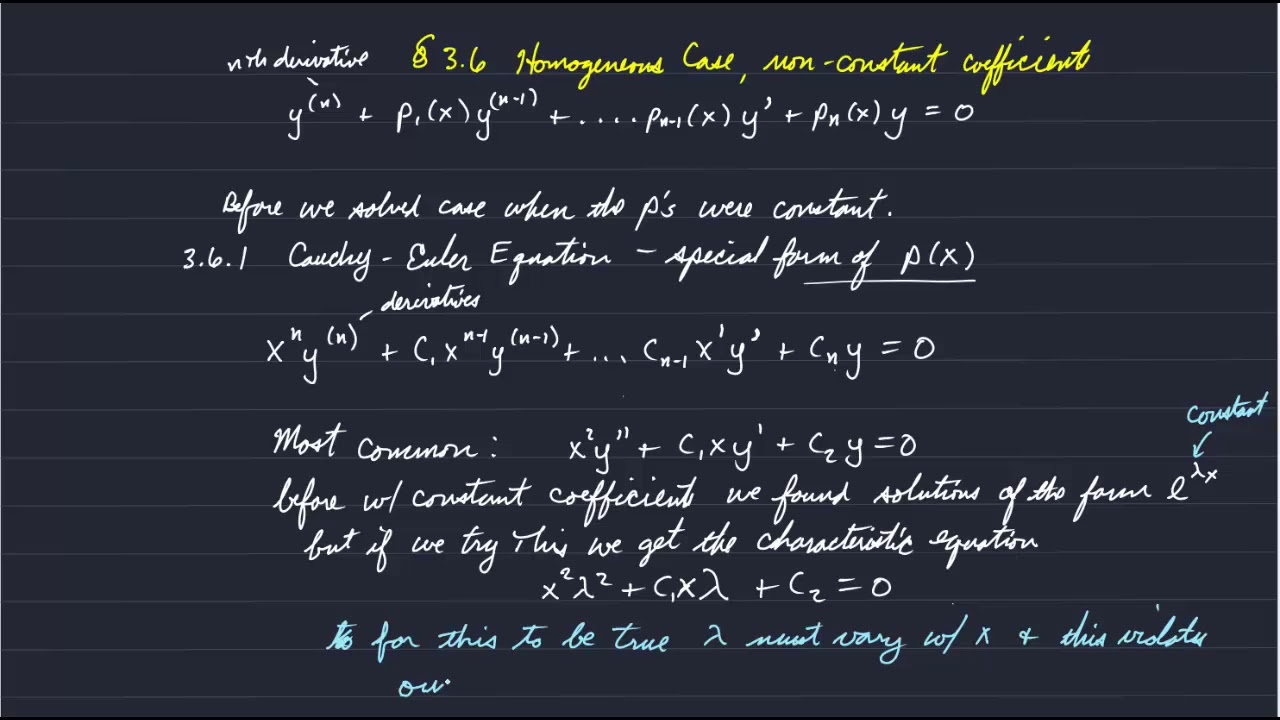 nth derivative § 3.6 Homogeneous Case, non-constant coefficients
y^(n) + p₁(x) y^(n-1) + .... pₙ₋₁(x) y' + pₙ(x) y = 0
Before we solved case when the p's were constant.
3.6.1 Cauchy-Euler Equation – special form of p(x)
derivatives
xⁿ y^(n) + C₁ xⁿ⁻¹ y^(n-1) + ... Cₙ₋₁ x¹ y' + Cₙ y = 0
constant
Most common: x² y'' + C₁ x y' + C₂ y = 0
before w/ constant coefficients we found solutions of the form e^λx
but if we try This we get the characteristic equation
x² λ² + C₁ x λ + C₂ = 0
for this to be true λ must vary w/ x & this violates
our